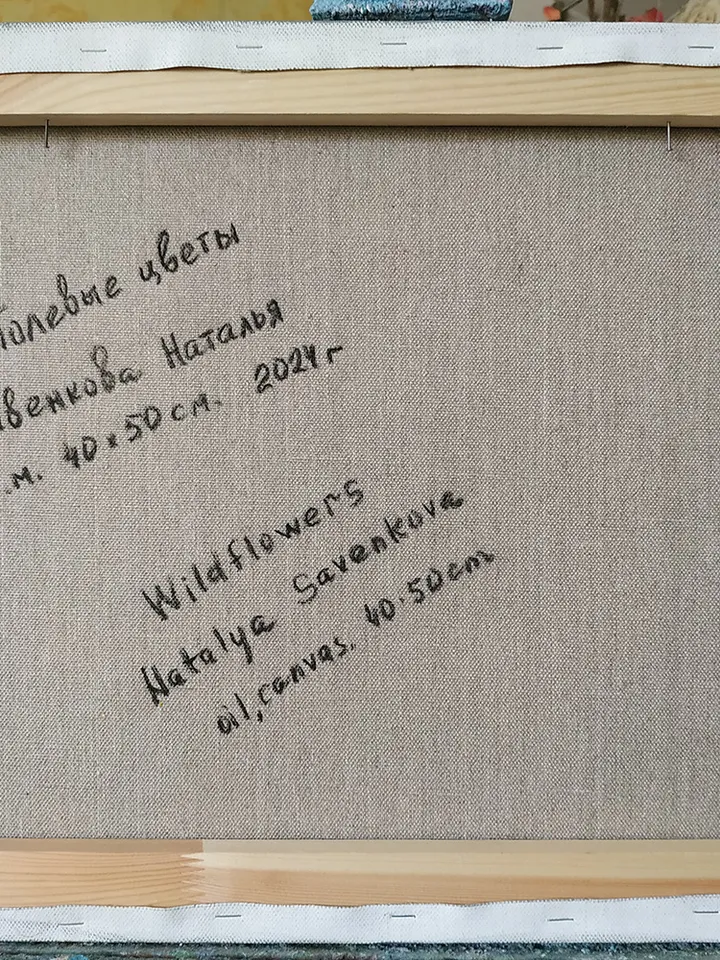 Полевые цветы
авенкова Наталья
.м. 40×50 см. 2024 г
Wildflowers
Natalya Savenkova
oil, canvas. 40·50 cm